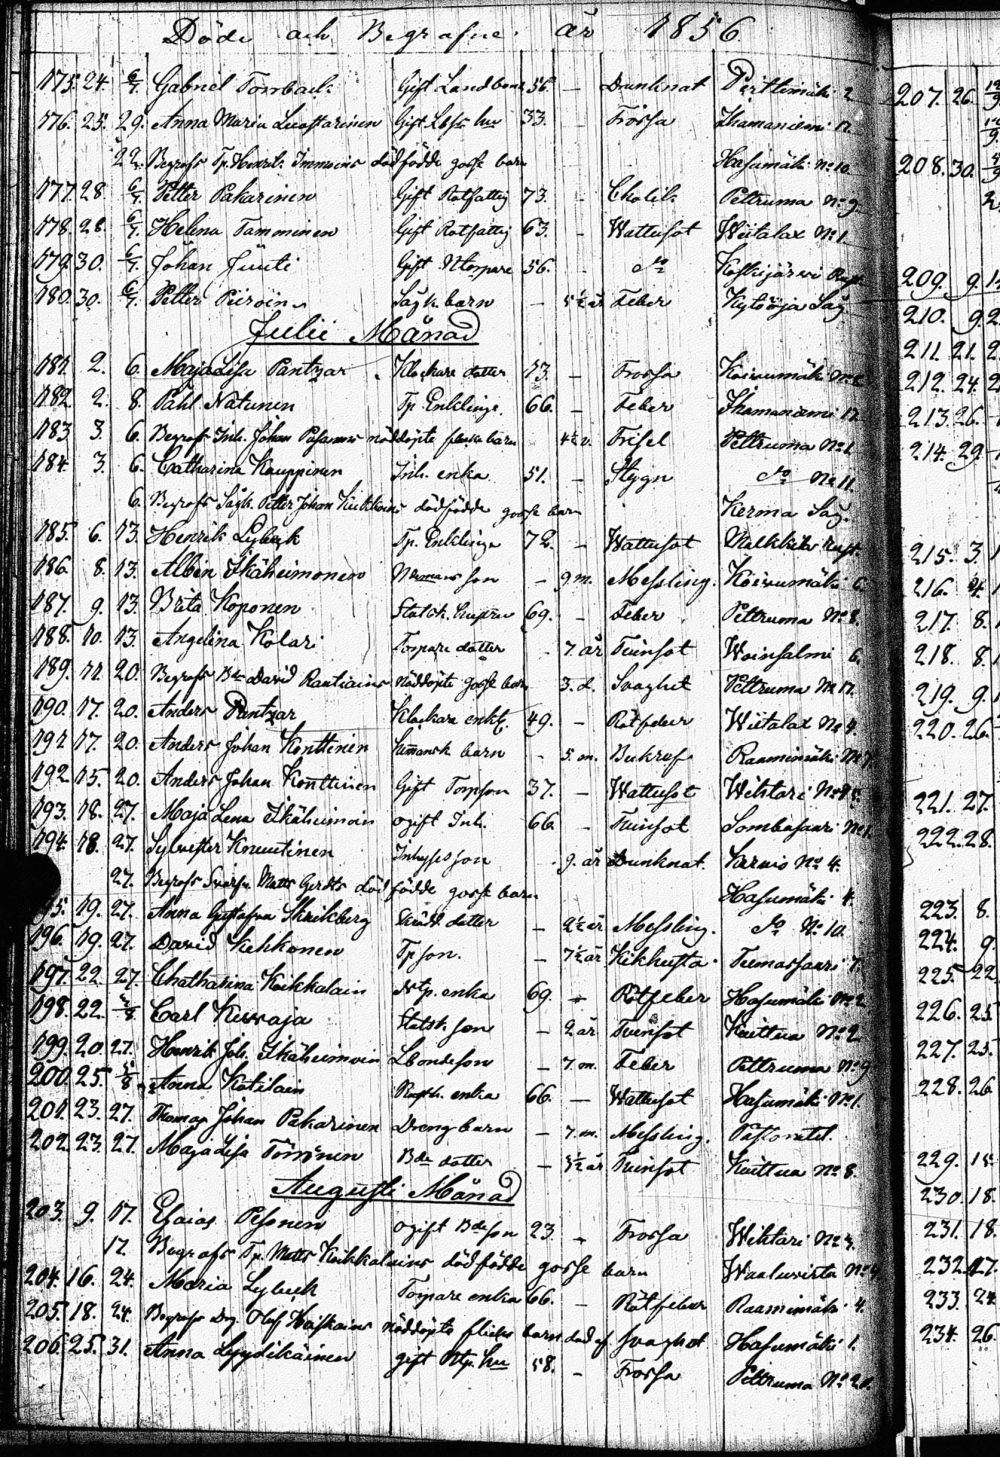 Döde och Begrafne år 1856
175. 24. 6/7. Gabriel Torrback Gift Landbonde 56. — Drunknat Perttimäki 2
176. 25. 29. Anna Maria Luostarinen Gift hu 33. — Frossa Ihamaniemi 17.
22. Begrofs Tp. Henrik Immoins dödfödde gosse barn Hasumäki No 10
177. 28. 6/7. Petter Pakarinen Gift Rotfattig 73. — Cholik Pettruma No 9
178. 28. 6/7. Helena Tamminen Gift Rotfattig 63. — Wattusot Wiitalax No 1
179. 30. 6/7. Johan Juuti Gift Ntorpare 56. — do Koskijärvi
180. 30. 6/7. Petter Piiroin Sågk. barn — 5½ år Feber Kytöoja Såg
Julii Månad
181. 2. 6. Maja Lisa Pantzar Klockare dotter 13. — Frossa Koivumäki No
182. 2. 8. Påhl Natunen Tp. Enklinge. 66. — Feber Ihamaniemi 17.
183. 3. 6. Begrofs Inh. Johan Pasanens nöddöpte flicka barn 4½ v. Frisel Pettruma No 1.
184. 3. 6. Catharina Kauppinen Inh. enka 51. — Stygn do No 11.
6. Begrofs Sågk. Petter Johan dödfödde gosse barn Kerma Såg.
185. 6. 13. Henrik Lybeck Tp. Enklinge 72. — Wattusot
186. 8. 13. Albin Ikäheimonen son — 9 m. Messling. Koivumäki 6.
187. 9. 13. Brita Koponen Statsk. hustru 69. — Feber Pettruma No 8.
188. 10. 13. Angelina Kolari Torpare dotter — 7. år Tvinsot Woinsalmi 6.
189. 11. 20. Begrofs Bde David Rautiains nöddöpte gosse barn 3. d. Svaghet Pettruma No 17.
190. 17. 20. Anders Pantzar Klockare enkl. 49. — Rötfeber Wiitalax No 4.
191. 17. 20. Anders Johan Konttinen barn — 5. m. Bukref Raaminmäki No 7.
192. 15. 20. Anders Johan Konttinen Gift Torpson 37. — Wattusot Wihtari No
193. 18. 27. Maja Lena Ikäheimoin ogift Inh. 66. — Tvinsot Sombasaari No 1.
194. 18. 27. Sylvester Knuutinen Inhyses son — 9. år Drunknat. Sarvio No 4.
27. Begrofs Matts Gerdts dödfödde gosse barn Hasumäki 4.
195. 19. 27. Anna Gustafva Skrikberg dotter — 2½ år Messling. do No 10.
196. 19. 27. David Kekkonen Tp son. — 7½ år Kikhosta. Tuomassaari 7.
197. 22. 27. Chatharina Koikkalain enka 69. — Rötfeber Hasumäki No 2
198. 22. 3/8. Carl Kervaja Statsk. son — 2. år Tvinsot Kuittua No 2.
199. 20. 27. Henrik Joh. Ikäheimoin Lbondeson — 7. m. Feber Pettruma No 9.
200. 25. 3/8. Anna Kotilain enka 66. — Wattusot Hasumäki No 1.
201. 23. 27. Thomas Johan Pakarinen Dreng barn — 7. m. Messling.
202. 23. 27. Maja Lisa Törrönen Bde dotter — 3½ år Tvinsot Kuittua No 8.
Augusti Månad
203. 9. 17. Esaias Pesonen ogift Bdeson 23. — Frossa Wihtari No 3.
17. Begrofs Tp. Matts Koikkalains dödfödde gosse barn Waaluvirta No
204. 16. 24. Maria Lybeck Torpare enka 66. — Rötfeber Raaminmäki 4.
205. 18. 24. Begrofs Dr. Olof nöddöpte flicke barn död af svaghet Hasumäki 1.
206. 25. 31. Anna Lyydikäinen gift Ntp. hu 58. — Frossa Pettruma No 20.
207. 26.
208. 30.
209. 9.
210. 9.
211. 21.
212. 24.
213. 26.
214. 29.
215. 3.
216. 4.
217. 8.
218. 8.
219. 9.
220. 26.
221. 27.
222. 28.
223. 8.
224. 9.
225. 22.
226. 25.
227. 25.
228. 26.
229. 15.
230. 18.
231. 18.
232. 17.
233. 24.
234. 26.